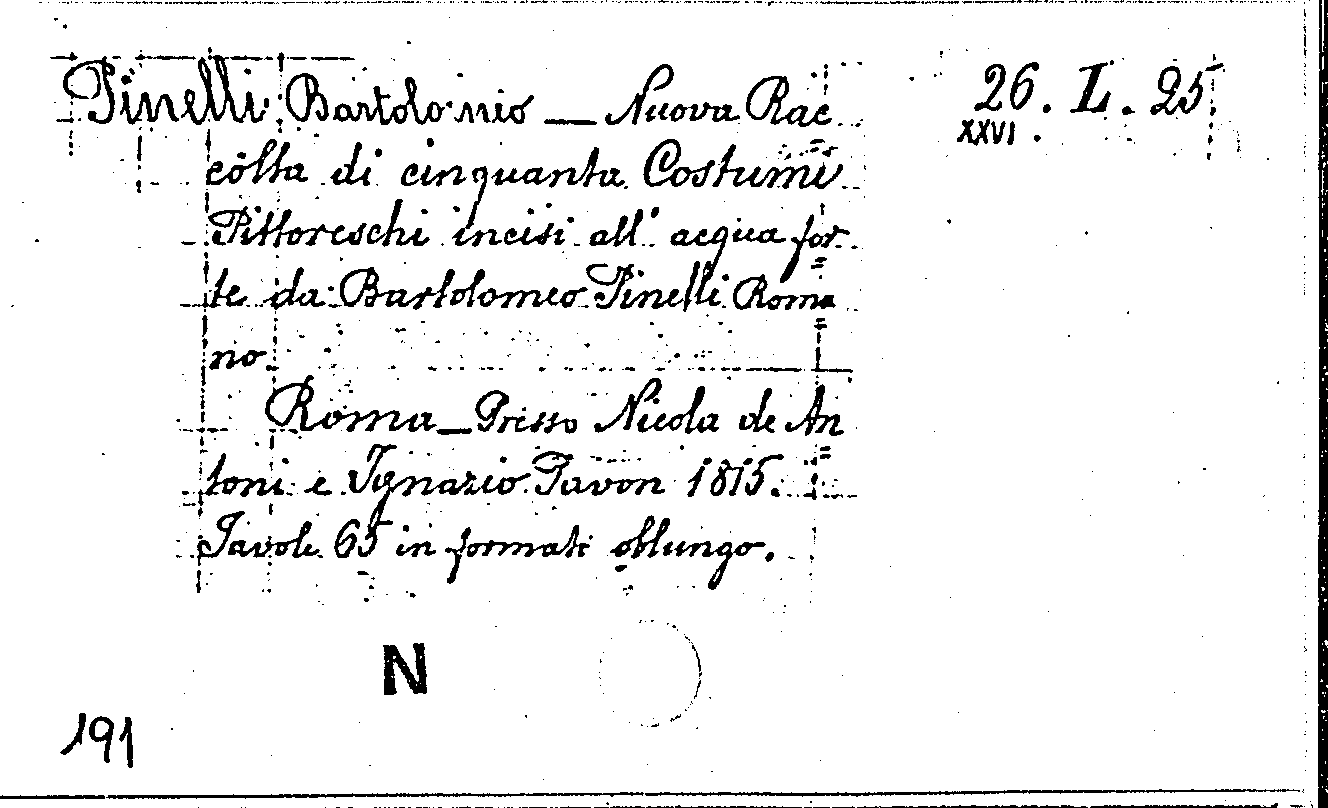 Pinelli Bartolomeo — Nuova Rac
26. L. 25
XXVI.
colta di cinquanta Costumi
Pittoreschi incisi all' acqua for=
te da Bartolomeo Pinelli Roma=
no
Roma — Presso Nicola de An=
toni e Ignazio Pavon 1815.
Tavole 65 in formato oblungo.
N
191